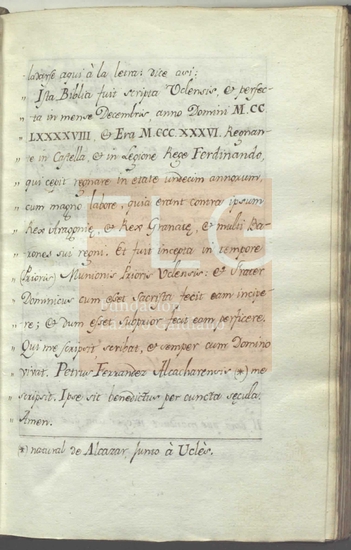 ladarse aqui à la letra: dice asi:
" Ista Biblia fuit scripta Uclensis, & perfec-
" ta in mense Decembris, anno Domini M.CC
" LXXXXVIII, & Era M.CCC.XXXVI. Regnan-
" te in Castella, & in Legione Rege Ferdinando,
" qui cepit regnare in etate undecim annorum,
" cum magno labore, quia erant contra ipsum
" Rex Aragonie, & Rex Granate, & multi Ba-
" rones sui regni. Et fuit incepta in tempore
" (Prioris) Munionis Prioris Uclensis: & Frater
" Dominicus cum esset Sacrista fecit eam incipe-
" re; & dum esset Subprior fecit eam perficere.
" Qui me scripsit scribat, & semper cum Domino
" vivat. Petrus Ferrandez Alcacharensis (*) me
" scripsit. Ipse sit benedictus per cuncta secula.
" Amen.
(*) natural de Alcazar, junto à Uclès.
FLG
Fundación
Lázaro Galdiano